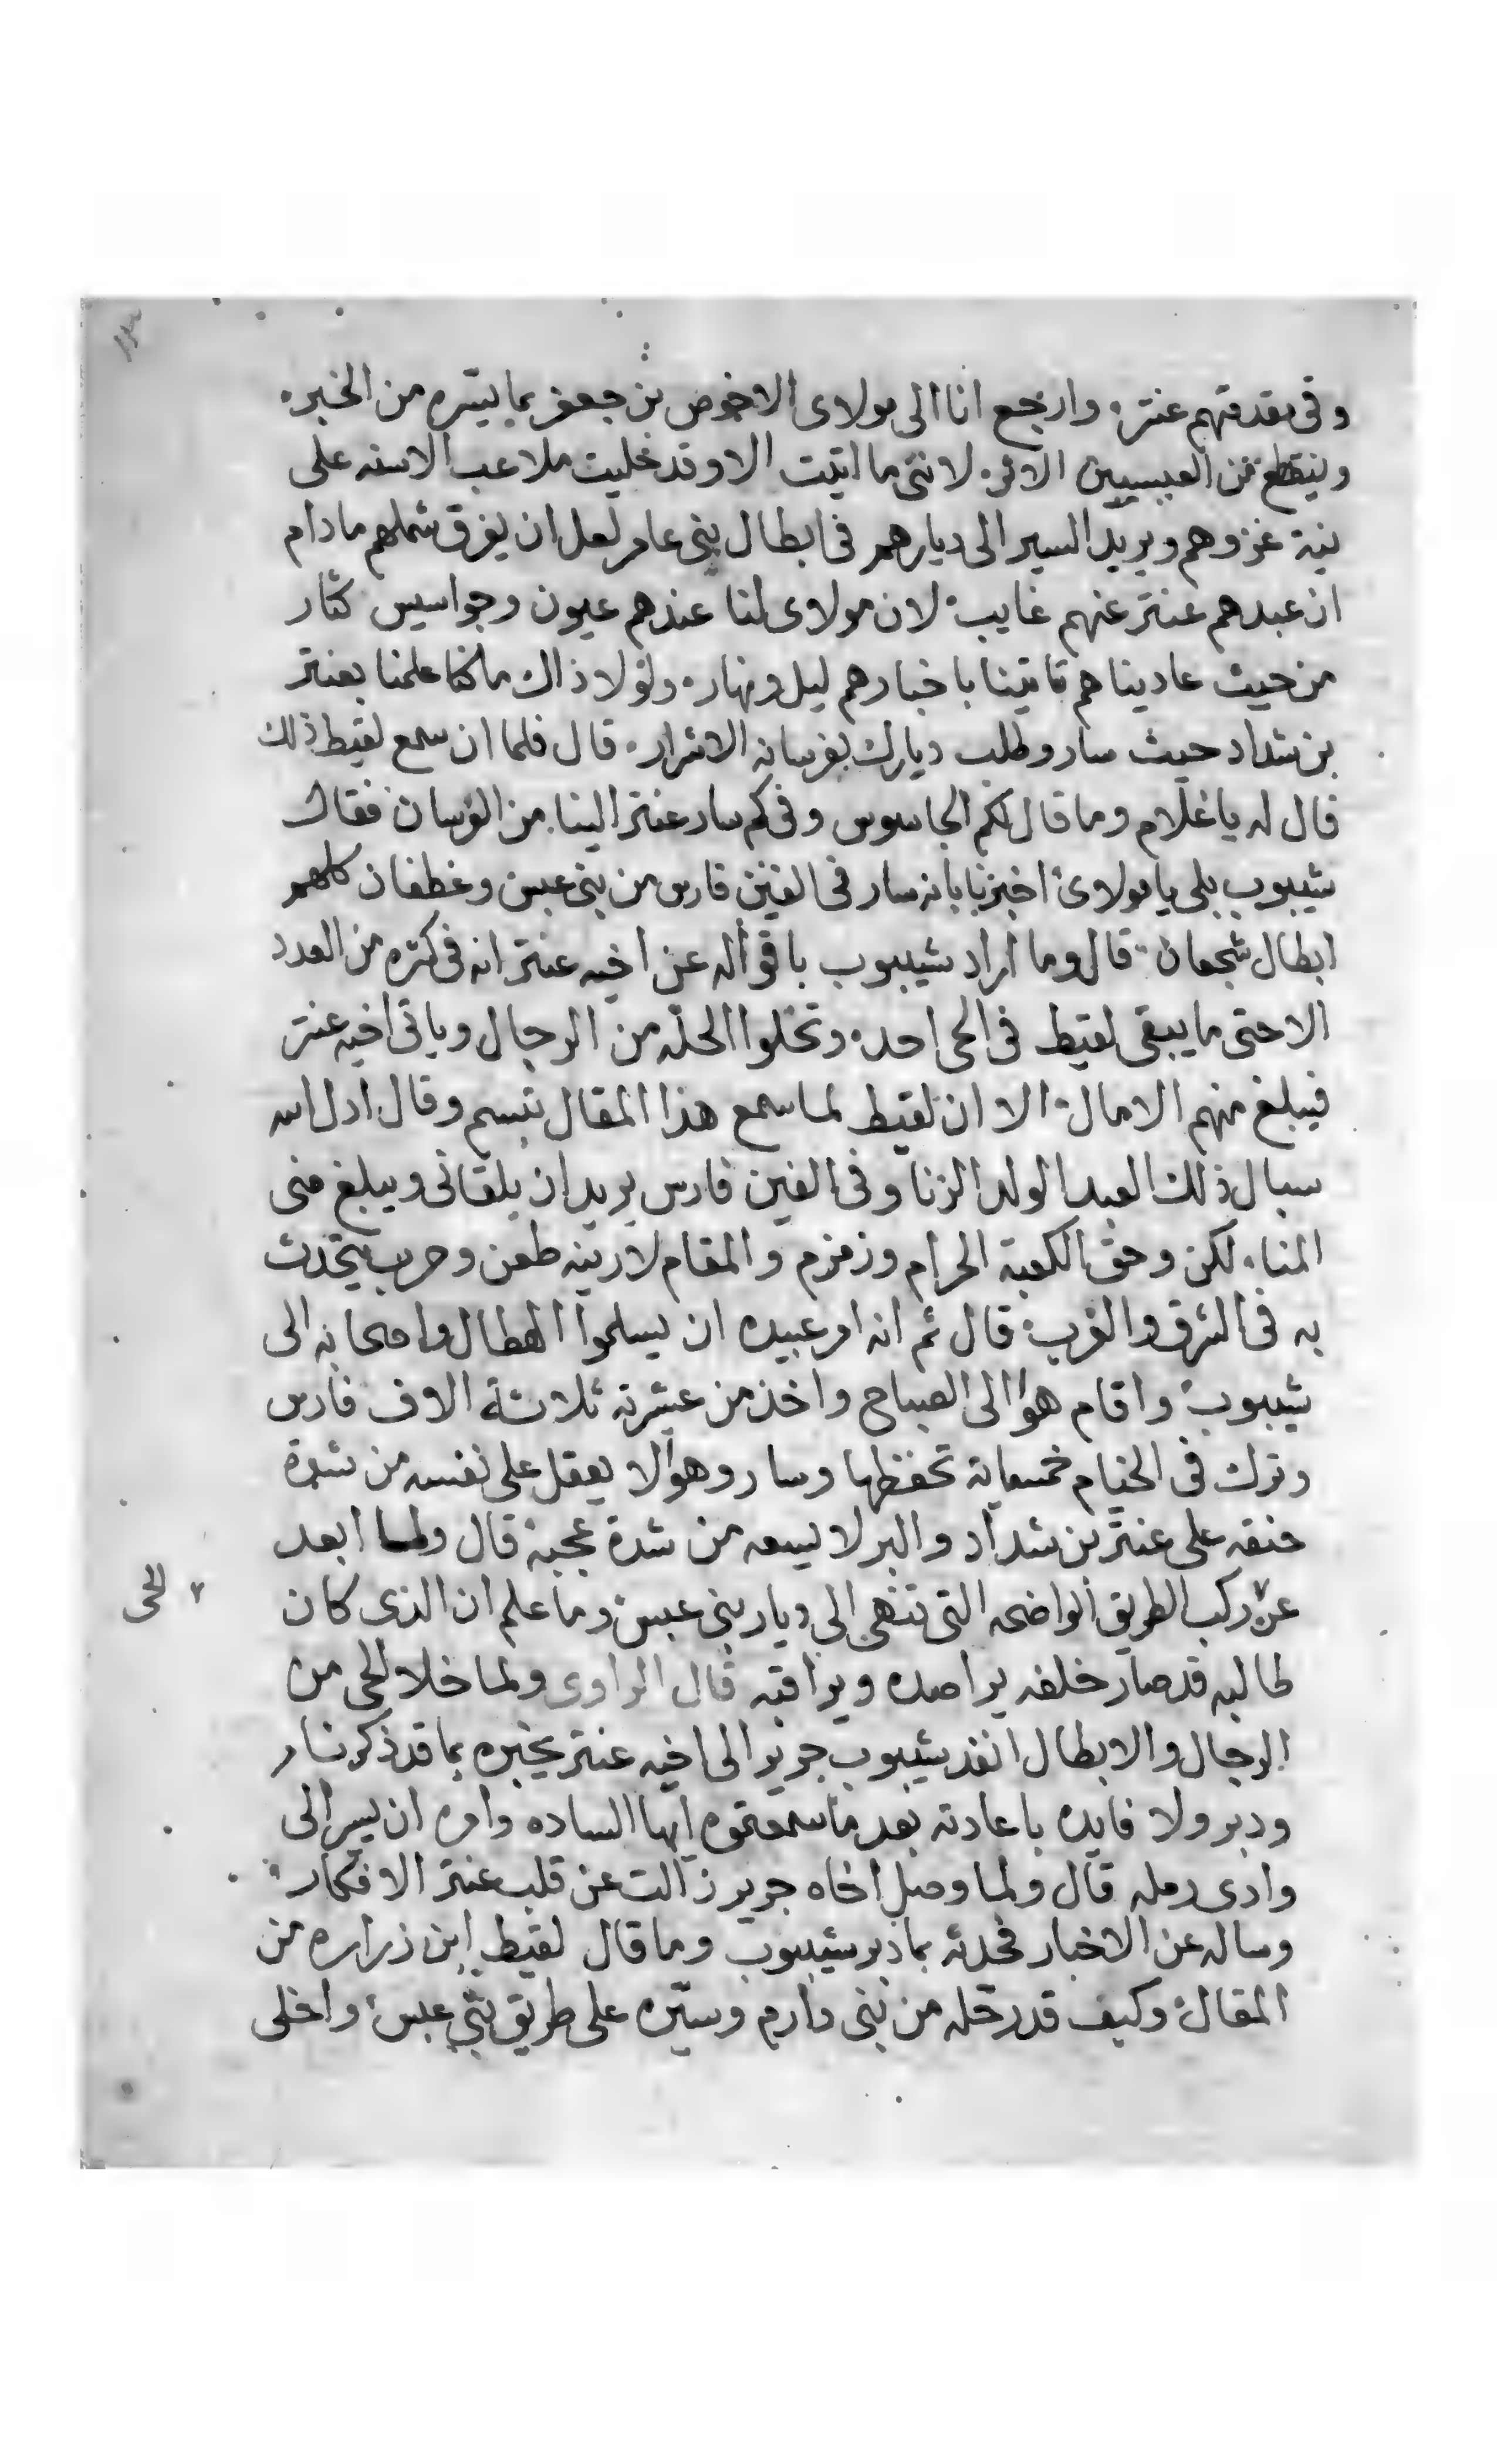 وفى مقدمتهم عنتر. وارجع انا الى مولاى الاخوص بن جعفر بما يسّره من الخبر.
وينقطع من العبسيين الاثر. لاننى ما اتيت الا وقد خليت ملاعب الاسنه على
نية غزوهم ويريد السير الى ديارهم فى ابطال بنى عامر لعل ان يفرق شملهم مادام
ان عبدهم عنتر عنهم غايب. لان مولاى لنا عندهم عيون وجواسيس كثار
من حيث عاديناهم تاتينا باخبارهم ليل ونهار. ولولا ذاك ما كنا علمنا بعنتر
بن شداد حيث سار وطلب ديارك بفرسانه الاشرار. قال فلما ان سمع لقيط ذلك
قال له يا غلام وما قال لكم الجاسوس وفى كم سار عنتر الينا من الفرسان فقال
شيبوب بلى يا مولاى اخبرنا بانه سار فى الفين فارس من بنى عبس وغطفان كلهم
ابطال شجعان قال وما اراد شيبوب باقواله عن اخيه عنتر انه فى كثره من العدد
الاحتى ما يبقى لقيط فى الحى احد. وتخلوا الحله من الرجال وياتى اخيه عنتر
فيبلغ منهم الامال. الا ان لقيط لما سمع هذا المقال تبسم وقال اذل الله
سبال ذلك العبد الولد الزنا وفى الفين فارس يريد ان يلقانى ويبلغ منى
المنا. لكن وحق الكعبة الحرام وزمزم والمقام لارينه طعن وحرب يتحدث
به فى الشرق والغرب. قال ثم انه امر عبيده ان يسلموا الهطال واصحابه الى
شيبوب واقام هو الى الصباح واخذ من عشيرته ثلاثة الاف فارس
وترك فى الخيام خمسماية تحفظها وسار وهو لا يعقل على نفسه من شدة
حنقه على عنتر بن شداد والبر لا يسعه من شدة عجبه قال ولما ابعد
عن ركب الطريق الواضحه التى تنتهى الى ديار بنى عبس وما علم ان الذى كان
الحى
طالبه قد صار خلفه يراصده ويراقبه قال الراوى ولما خلا الحى من
الرجال والابطال انفد شيبوب جرير الى اخيه عنتر يخبره بما قد ذكرنا
ودبر ولا فايده باعادته بعد ما سمعتموه ايها الساده وامره ان يسير الى
وادى رمله قال ولما وصل اخاه جرير زالت عن قلب عنتر الافكار
وساله عن الاخبار فحدثه بما دبر شيبوب وما قال لقيط ابن زراره من
المقال وكيف قد رحّله من بنى دارم وسيّره على طريق بنى عبس واخلى